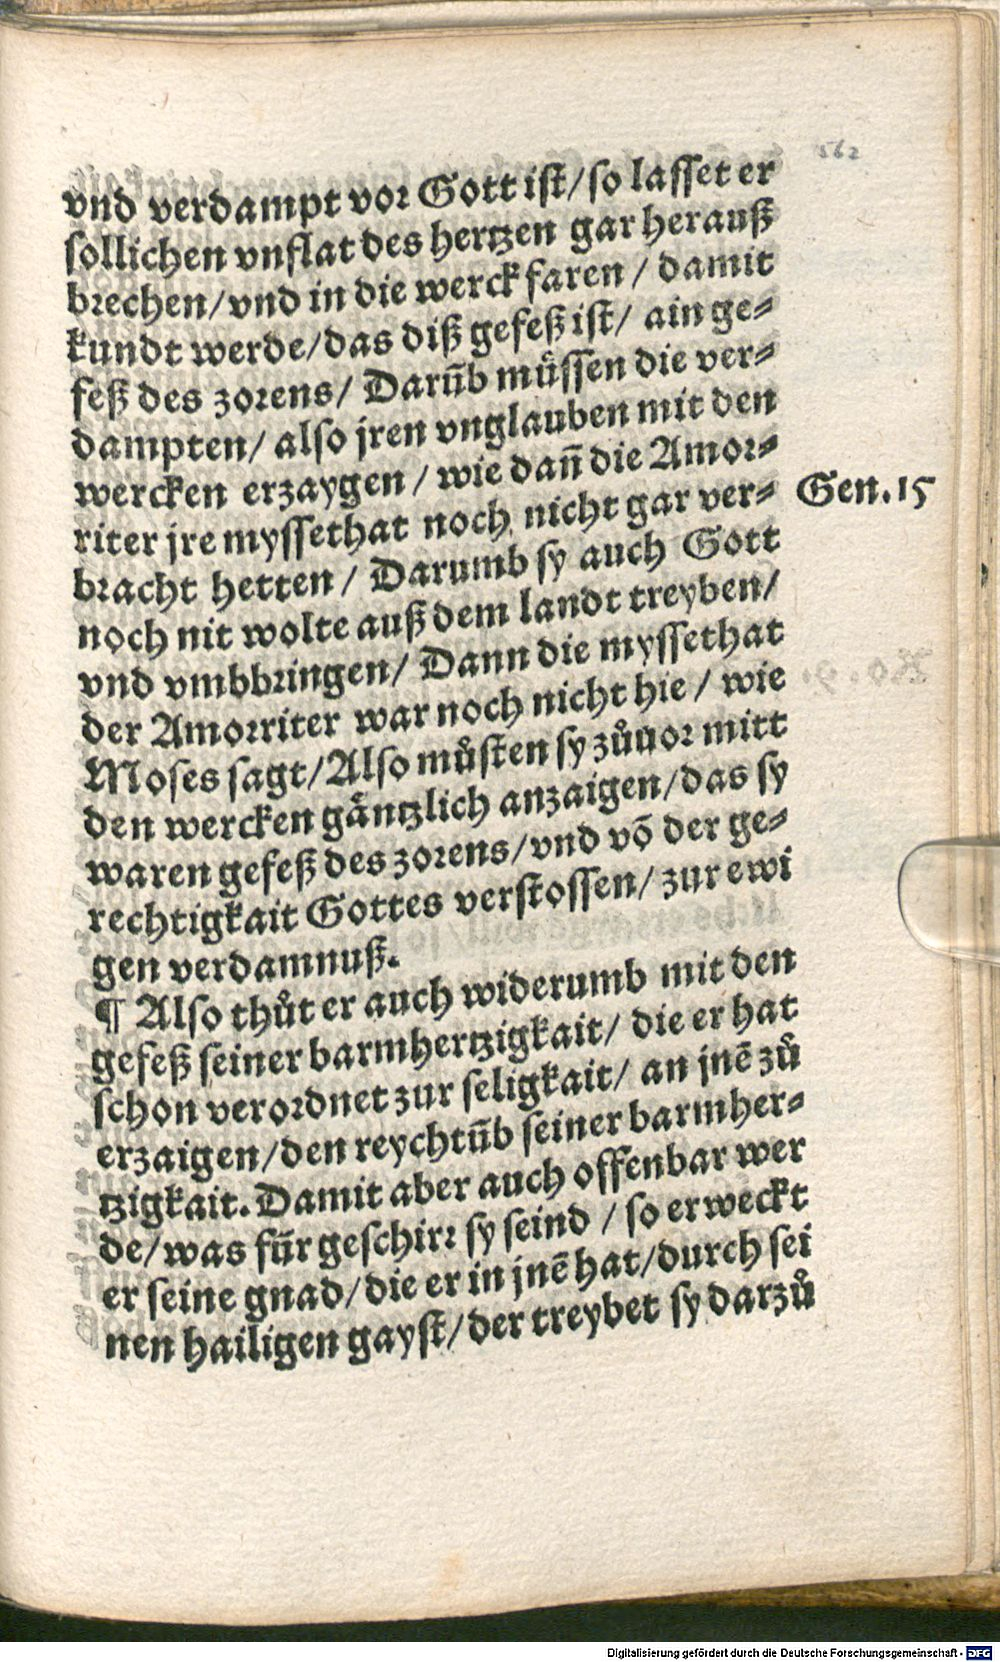 562
vnd verdampt vor Gott ist/ so lasset er
sollichen vnflat des hertzen gar herauß
brechen/ vnd in die werck faren / damit
kundt werde/ das diß gefeß ist/ ain ge⸗
feß des zorens/ Darūb muͤssen die ver⸗
dampten/ also jren vnglauben mit den
wercken erzaygen / wie dañ die Amor⸗
riter jre myssethat noch nicht gar ver⸗
Gen. 15
bracht hetten / Darumb sy auch Gott
noch nit wolte auß dem landt treyben/
vnd vmbbringen/ Dann die myssethat
der Amorriter war noch nicht hie / wie
Moses sagt/ Also muͤsten sy zuͦuor mitt
den wercken gaͤntzlich anzaigen/ das sy
waren gefeß des zorens/ vnd võ der ge⸗
rechtigkait Gottes verstossen/ zur ewi
gen verdamnuß.
¶ Also thuͦt er auch widerumb mit den
gefeß seiner barmhertzigkait/ die er hat
schon verordnet zur seligkait/ an jnē zuͦ
erzaigen/ den reychtūb seiner barmher⸗
tzigkait. Damit aber auch offenbar wer
de/ was fuͤr geschirr sy seind / so erweckt
er seine gnad/ die er in jnē hat/ durch sei
nen hailigen gayst/ der treybet sy darzuͦ
Digitalisierung gefördert durch die Deutsche Forschungsgemeinschaft - DFG